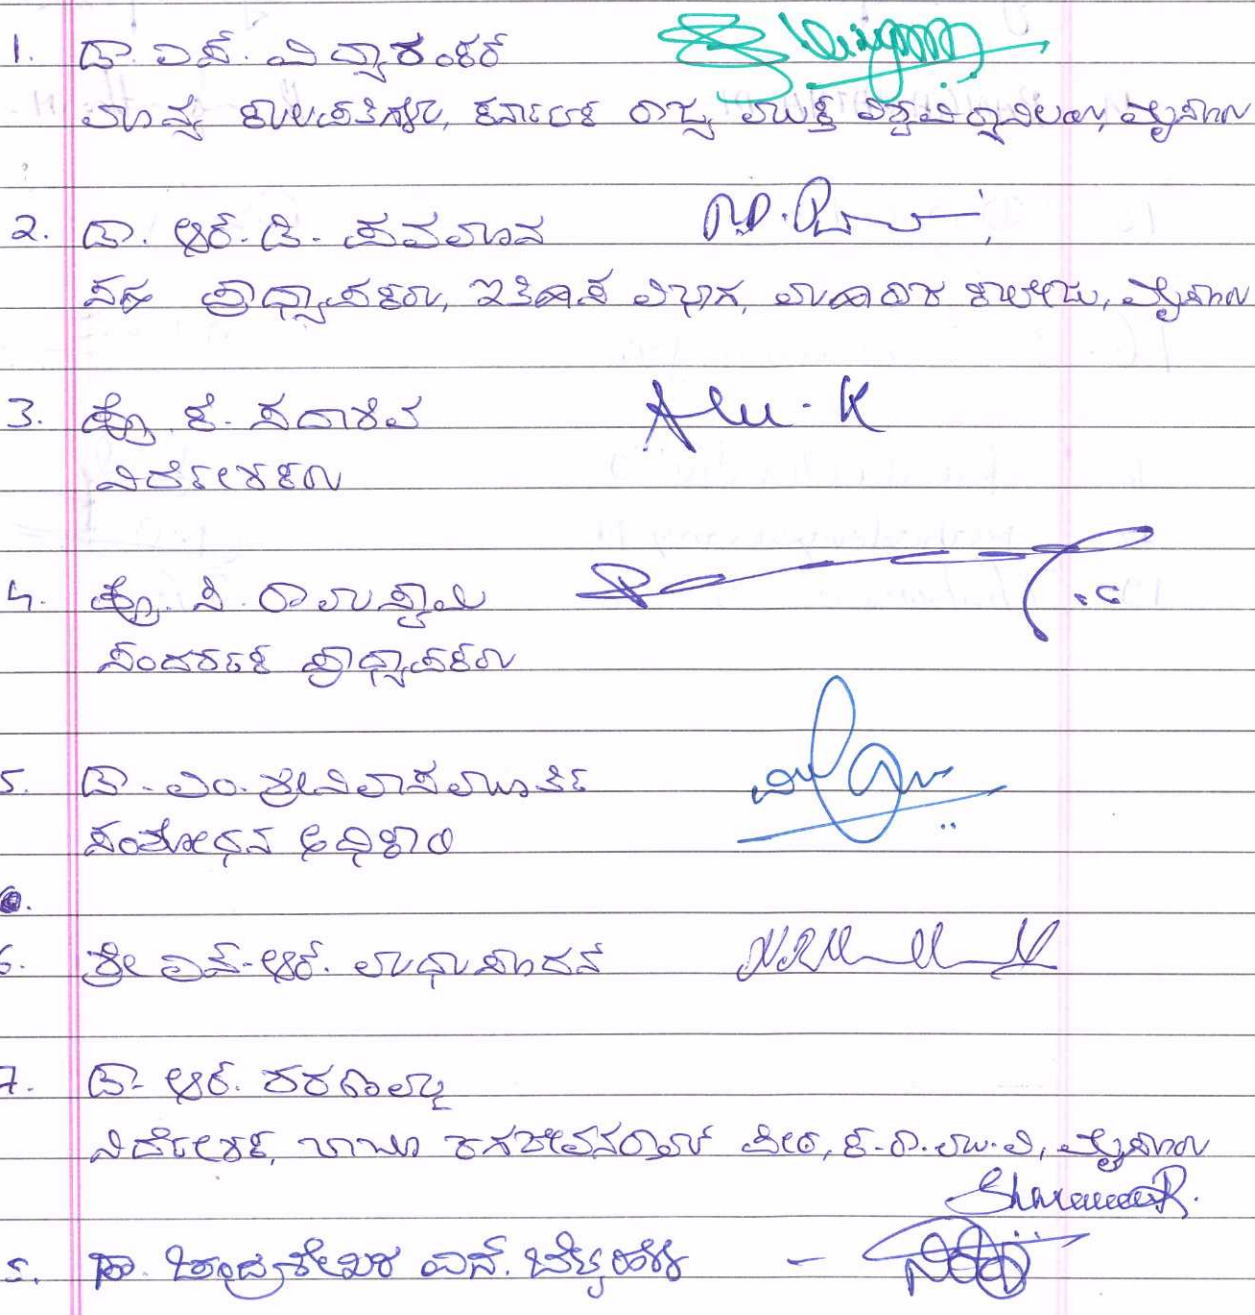 1. ಡಾ. ಎಸ್. ವಿದ್ಯಾಶಂಕರ್
ಮಾನ್ಯ ಕುಲಪತಿಗಳು, ಕರ್ನಾಟಕ ರಾಜ್ಯ ಮುಕ್ತ ವಿಶ್ವವಿದ್ಯಾನಿಲಯ, ಮೈಸೂರು
2. ಡಾ. ಆರ್.ಡಿ. ಪವಮಾನ
ಸಹ ಪ್ರಾಧ್ಯಾಪಕರು, ಇತಿಹಾಸ ವಿಭಾಗ, ಮಹಾರಾಜ ಕಾಲೇಜು, ಮೈಸೂರು
3. ಪ್ರೊ. ಕೆ. ಸದಾಶಿವ
ನಿರ್ದೇಶಕರು
4. ಪ್ರೊ. ಸಿ. ರಾಮಸ್ವಾಮಿ
ಸಂದರ್ಶಕ ಪ್ರಾಧ್ಯಾಪಕರು
5. ಡಾ. ಎಂ. ಶ್ರೀನಿವಾಸಮೂರ್ತಿ
ಸಂಶೋಧನ ಅಧಿಕಾರಿ
6. ಶ್ರೀ ಎನ್.ಆರ್. ಮಧುಸೂದನ್
7. ಡಾ. ಆರ್. ಶರಣಮ್ಮ
ನಿರ್ದೇಶಕಿ, ಬಾಬು ಜಗಜೀವನರಾಮ್ ಪೀಠ, ಕ.ರಾ.ಮು.ವಿ, ಮೈಸೂರು
ಡಾ. ಚಂದ್ರಶೇಖರ ಎಸ್.